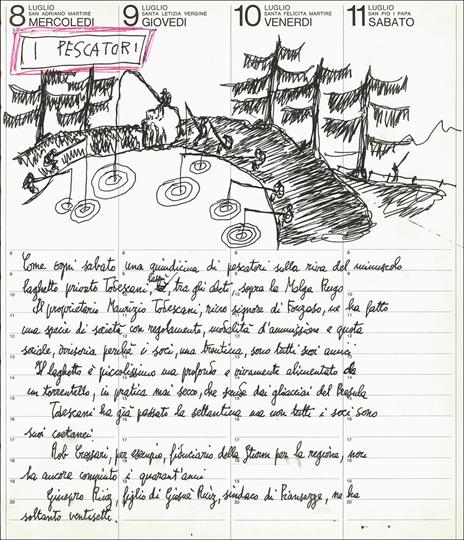 8 LUGLIO SAN ADRIANO MARTIRE MERCOLEDI
9 LUGLIO SANTA LETIZIA VERGINE GIOVEDI
10 LUGLIO SANTA FELICITA MARTIRE VENERDI
11 LUGLIO SAN PIO I PAPA SABATO
I PESCATORI
Come ogni sabato una quindicina di pescatori sulla riva del minuscolo
laghetto privato Todescani, tra gli abeti, sopra la Malga
Il proprietario Maurizio Todescani, ricco signore di Fonzaso, ne ha fatto
una specie di società con regolamento, modalità d'ammissione e quota
sociale, irrisoria perché i soci, una trentina, sono tutti suoi amici
Il laghetto è piccolissimo ma profondo e vivamente alimentato da
un torrentello, in pratica mai secco, che scende dai ghiacciai del
Todescani ha già passato la settantina ma non tutti i soci sono
suoi coetanei
Rob per esempio, fiduciario della per la regione, non
ha ancora compiuto i quarant'anni
Ruiz, figlio di Giosuè Ruiz, sindaco di ne ha
soltanto ventisette.